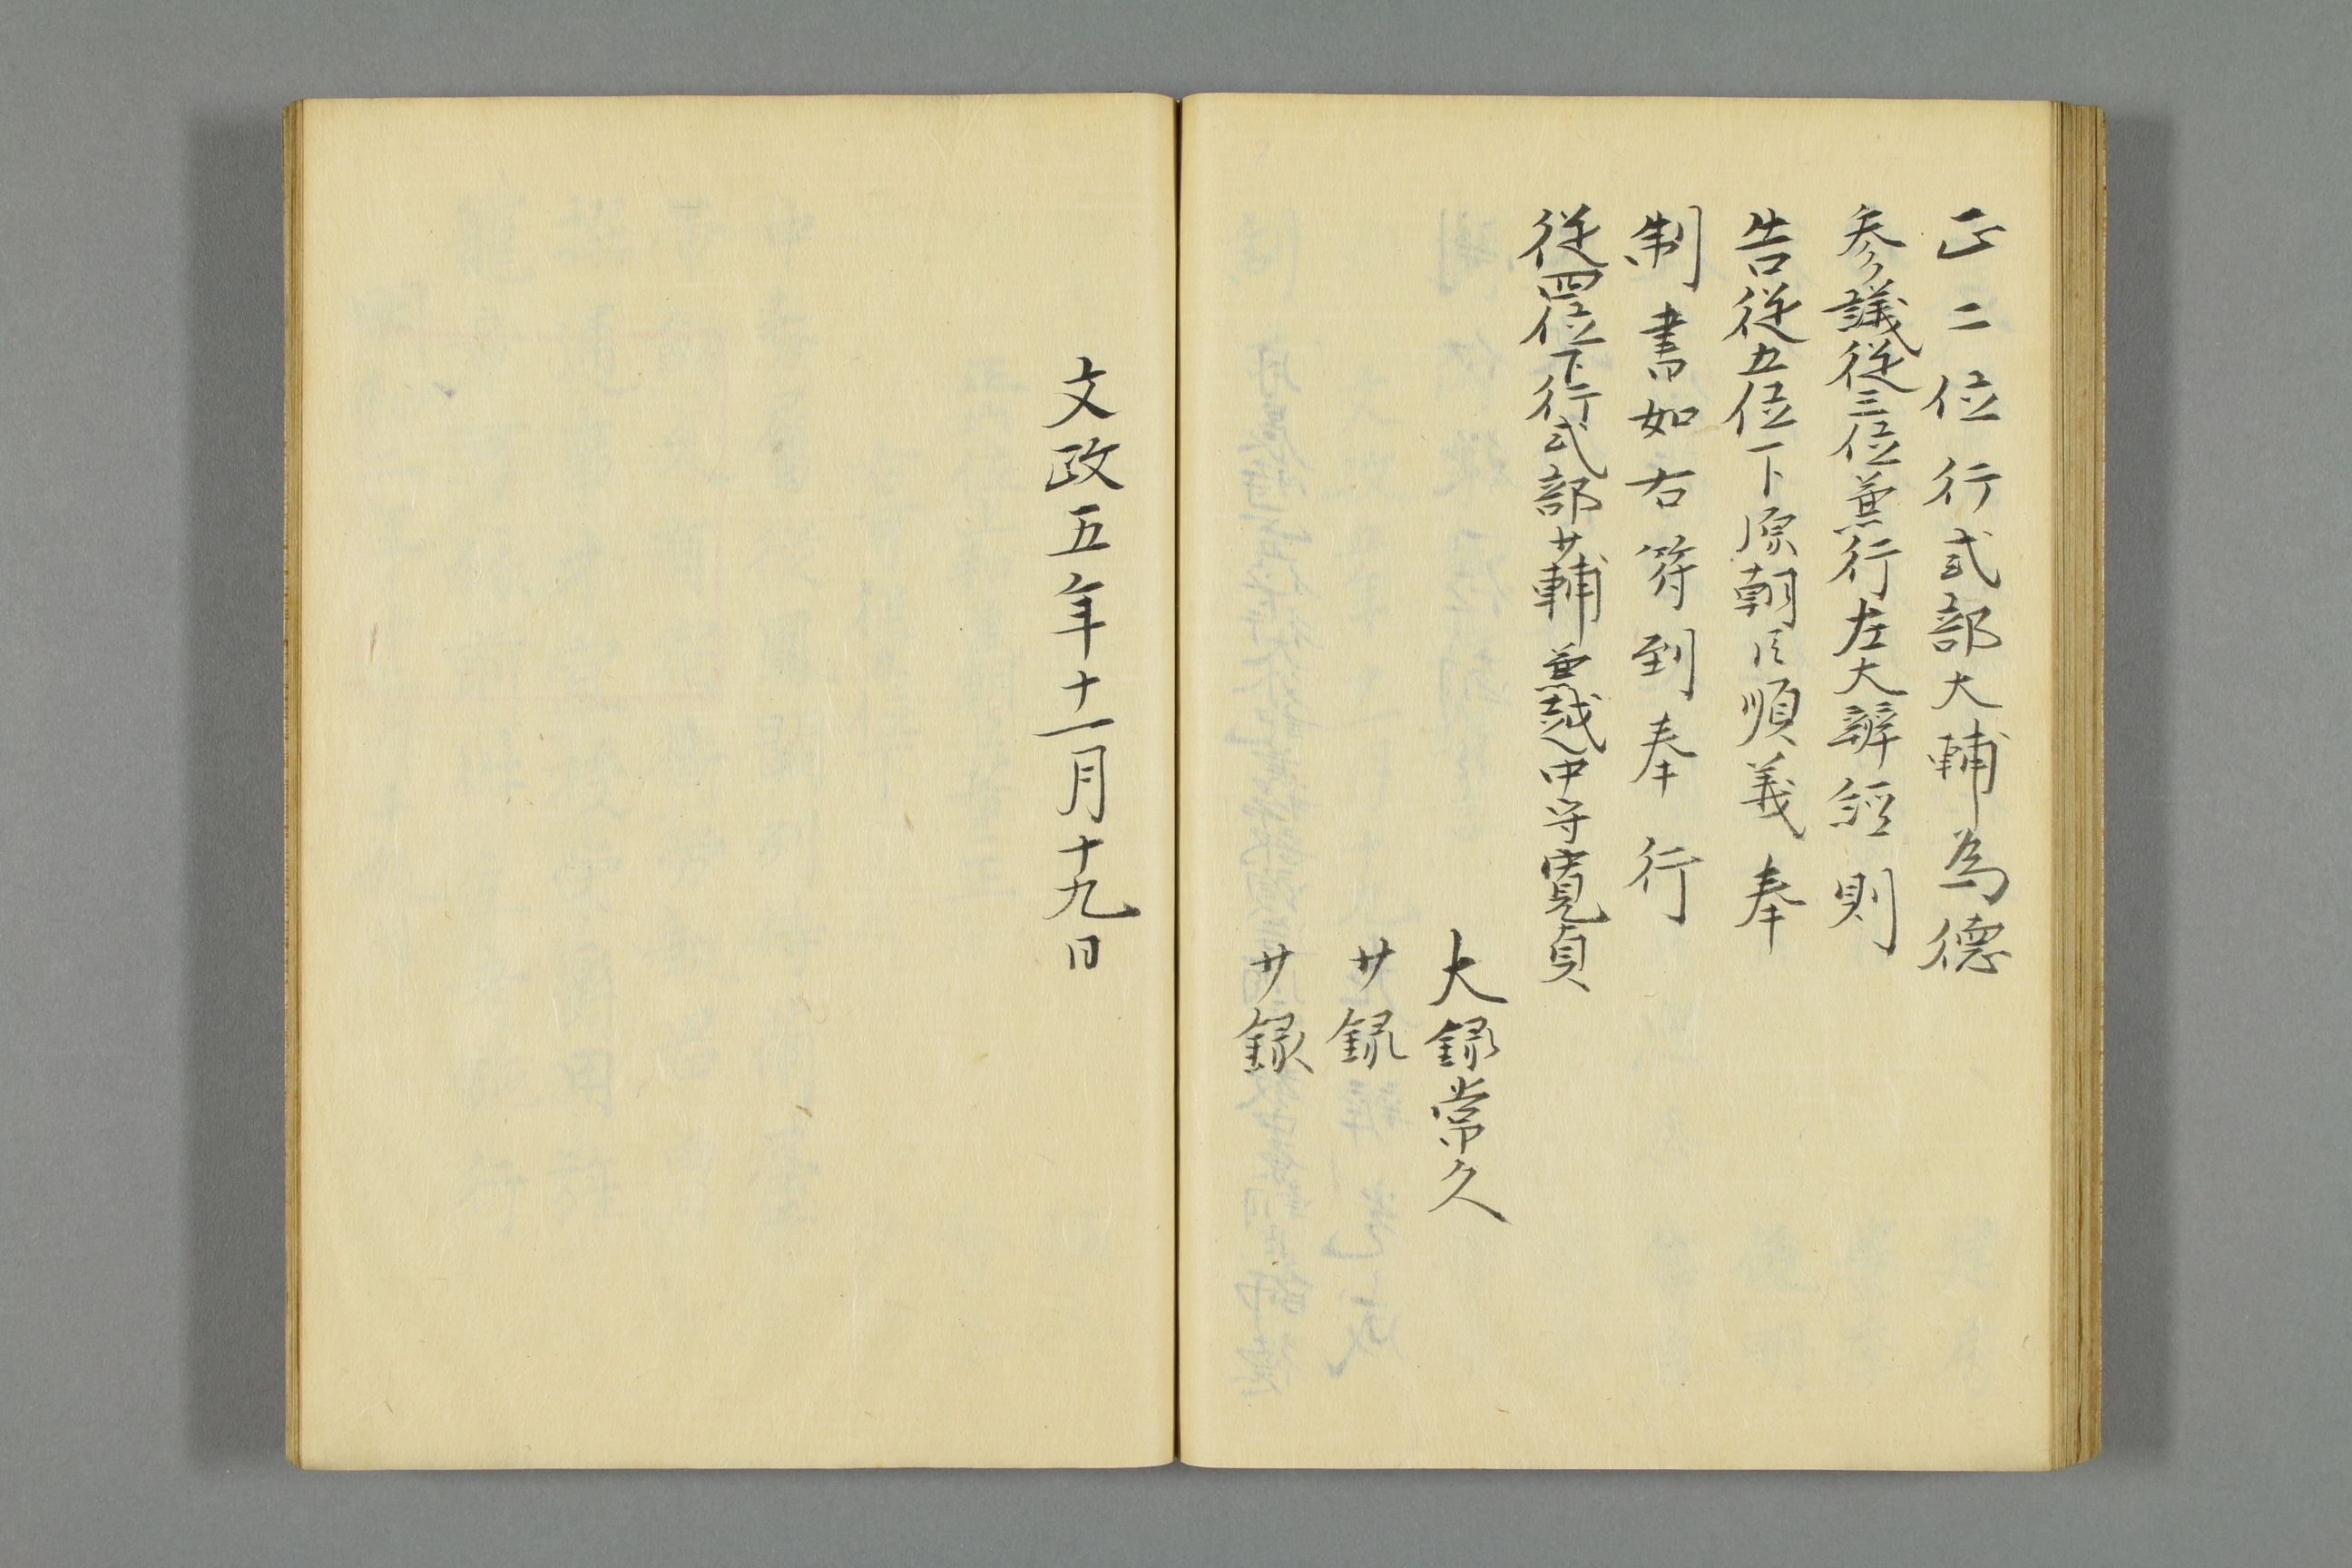 正二位行式部大輔為德
参議從三位兼行左大辨經則
告從五位下源朝臣順義奉
制書如右符到奉行
從四位下行式部少輔兼越中守寬貞
大録常久
少録
少録
文政五年十一月十九日